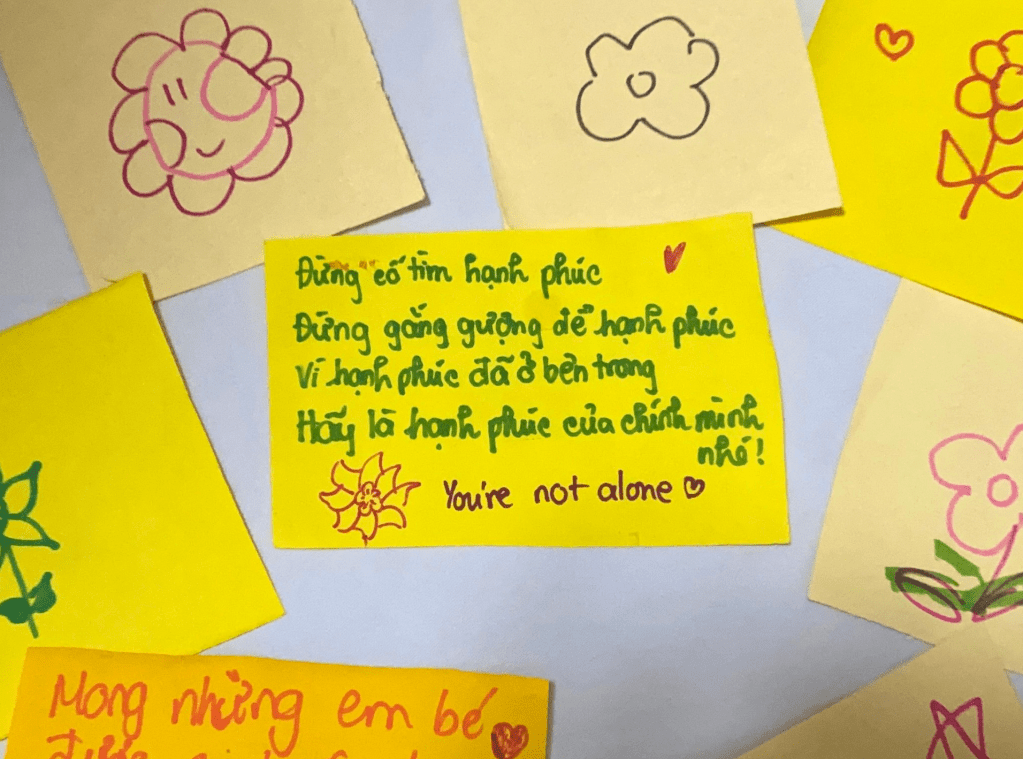 Đừng cố tìm hạnh phúc
Đừng gắng gượng để hạnh phúc
Vì hạnh phúc đã ở bên trong
Hãy là hạnh phúc của chính mình
nhé!
You're not alone
Mong những em bé
được